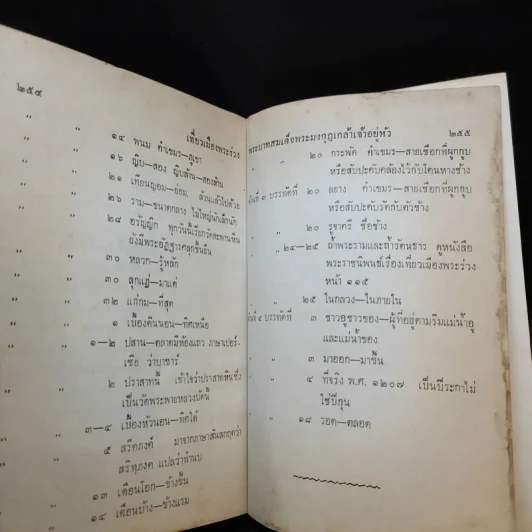 ๒๕๔
เที่ยวเมืองพระร่วง
" " ๑๔ พนม คำเขมร—ภูเขา
" " ๑๖ ญิบ—สอง ญิบล้าน—สองล้าน
" " ๒๑ เทียนญอม—ย่อม, ล้วนแล้วไปด้วย
" " ๒๖ ราม—ขนาดกลาง ไม่ใหญ่นักเล็กนัก
" " ๒๘ อรัญญิก ทุกวันนี้เรียกวัดสะพานหิน
ยังมีพระอัฏฐารศอยู่บนนั้น
" " ๓๐ หลวก—รู้หลัก
" " ๓๐ ลุกแฝง—มาแต่
" " ๓๒ แก่กม—ที่สุด
" " ๑ เบื้องตีนนอน—ทิศเหนือ
" " ๑—๒ ปสาน—ตลาดมีห้องแถว ภาษาเปอร์-
เซีย ว่าบาซาร์
" " ๒ ปราสาทนี้ เข้าใจว่าปราสาทหินซึ่ง
เป็นวัดพระพายหลวงบัดนี้
" " ๓—๔ เบื้องหัวนอน—ทิศใต้
" " ๕ สรีดภงส์ มาจากภาษาสันสกฤตว่า
สริทฺภงฺค แปลว่าทำนบ
" " ๑๓ เดือนโอก—ข้างขึ้น
" " ๑๔ เดือนบ้าง—ข้างแรม
พระบาทสมเด็จพระมงกุฎเกล้าเจ้าอยู่หัว ๒๕๕
" " ๒๐ กระพัด คำเขมร—สายเชือกที่ผูกกูบ
หรือสัปะคับคล้องไว้กับโคนหางช้าง
ด้านที่ ๓ บรรทัดที่ ๒๐ ลยาง คำเขมร—สายเชือกที่ผูกกูบ
หรือสัปะคับรัดกับตัวช้าง
" " ๒๐ รูจาครี ชื่อช้าง
" " ๒๔—๒๕ ถ้ำพระรามและถ้ำรัตนธาร ดูหนังสือ
พระราชนิพนธ์เรื่องเที่ยวเมืองพระร่วง
หน้า ๑๑๕
" " ๒๕ ในกลวง—ในภายใน
ด้านที่ ๔ บรรทัดที่ ๓ ชาวอูชาวของ—ผู้ที่อยู่ตามริมแม่น้ำอู
และแม่น้ำของ
" " ๓ มาออก—มาขึ้น
" " ๔ ที่จริง พ.ศ. ๑๒๐๗ เป็นปีระกาไม่
ใช่ปีกุน
" " ๑๘ รอด—ตลอด